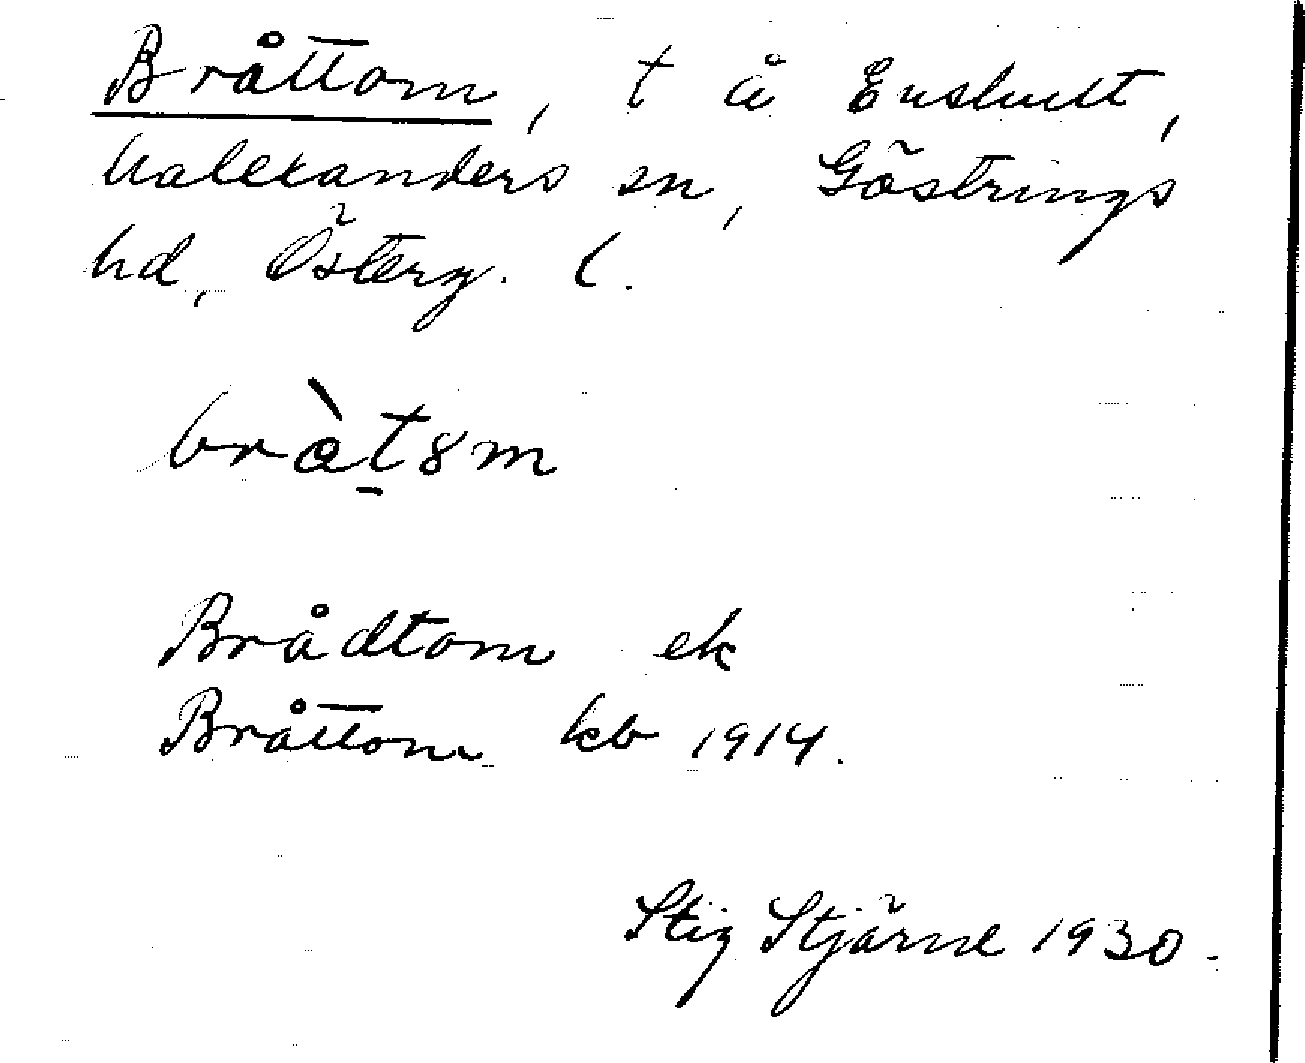 Bråttom, t å Enshult,
Malexanders sn, Göstrings
hd, Österg. l.
bràt8m
Brådtom ek
Bråttom kb 1914.
Stig Stjärne 1930.